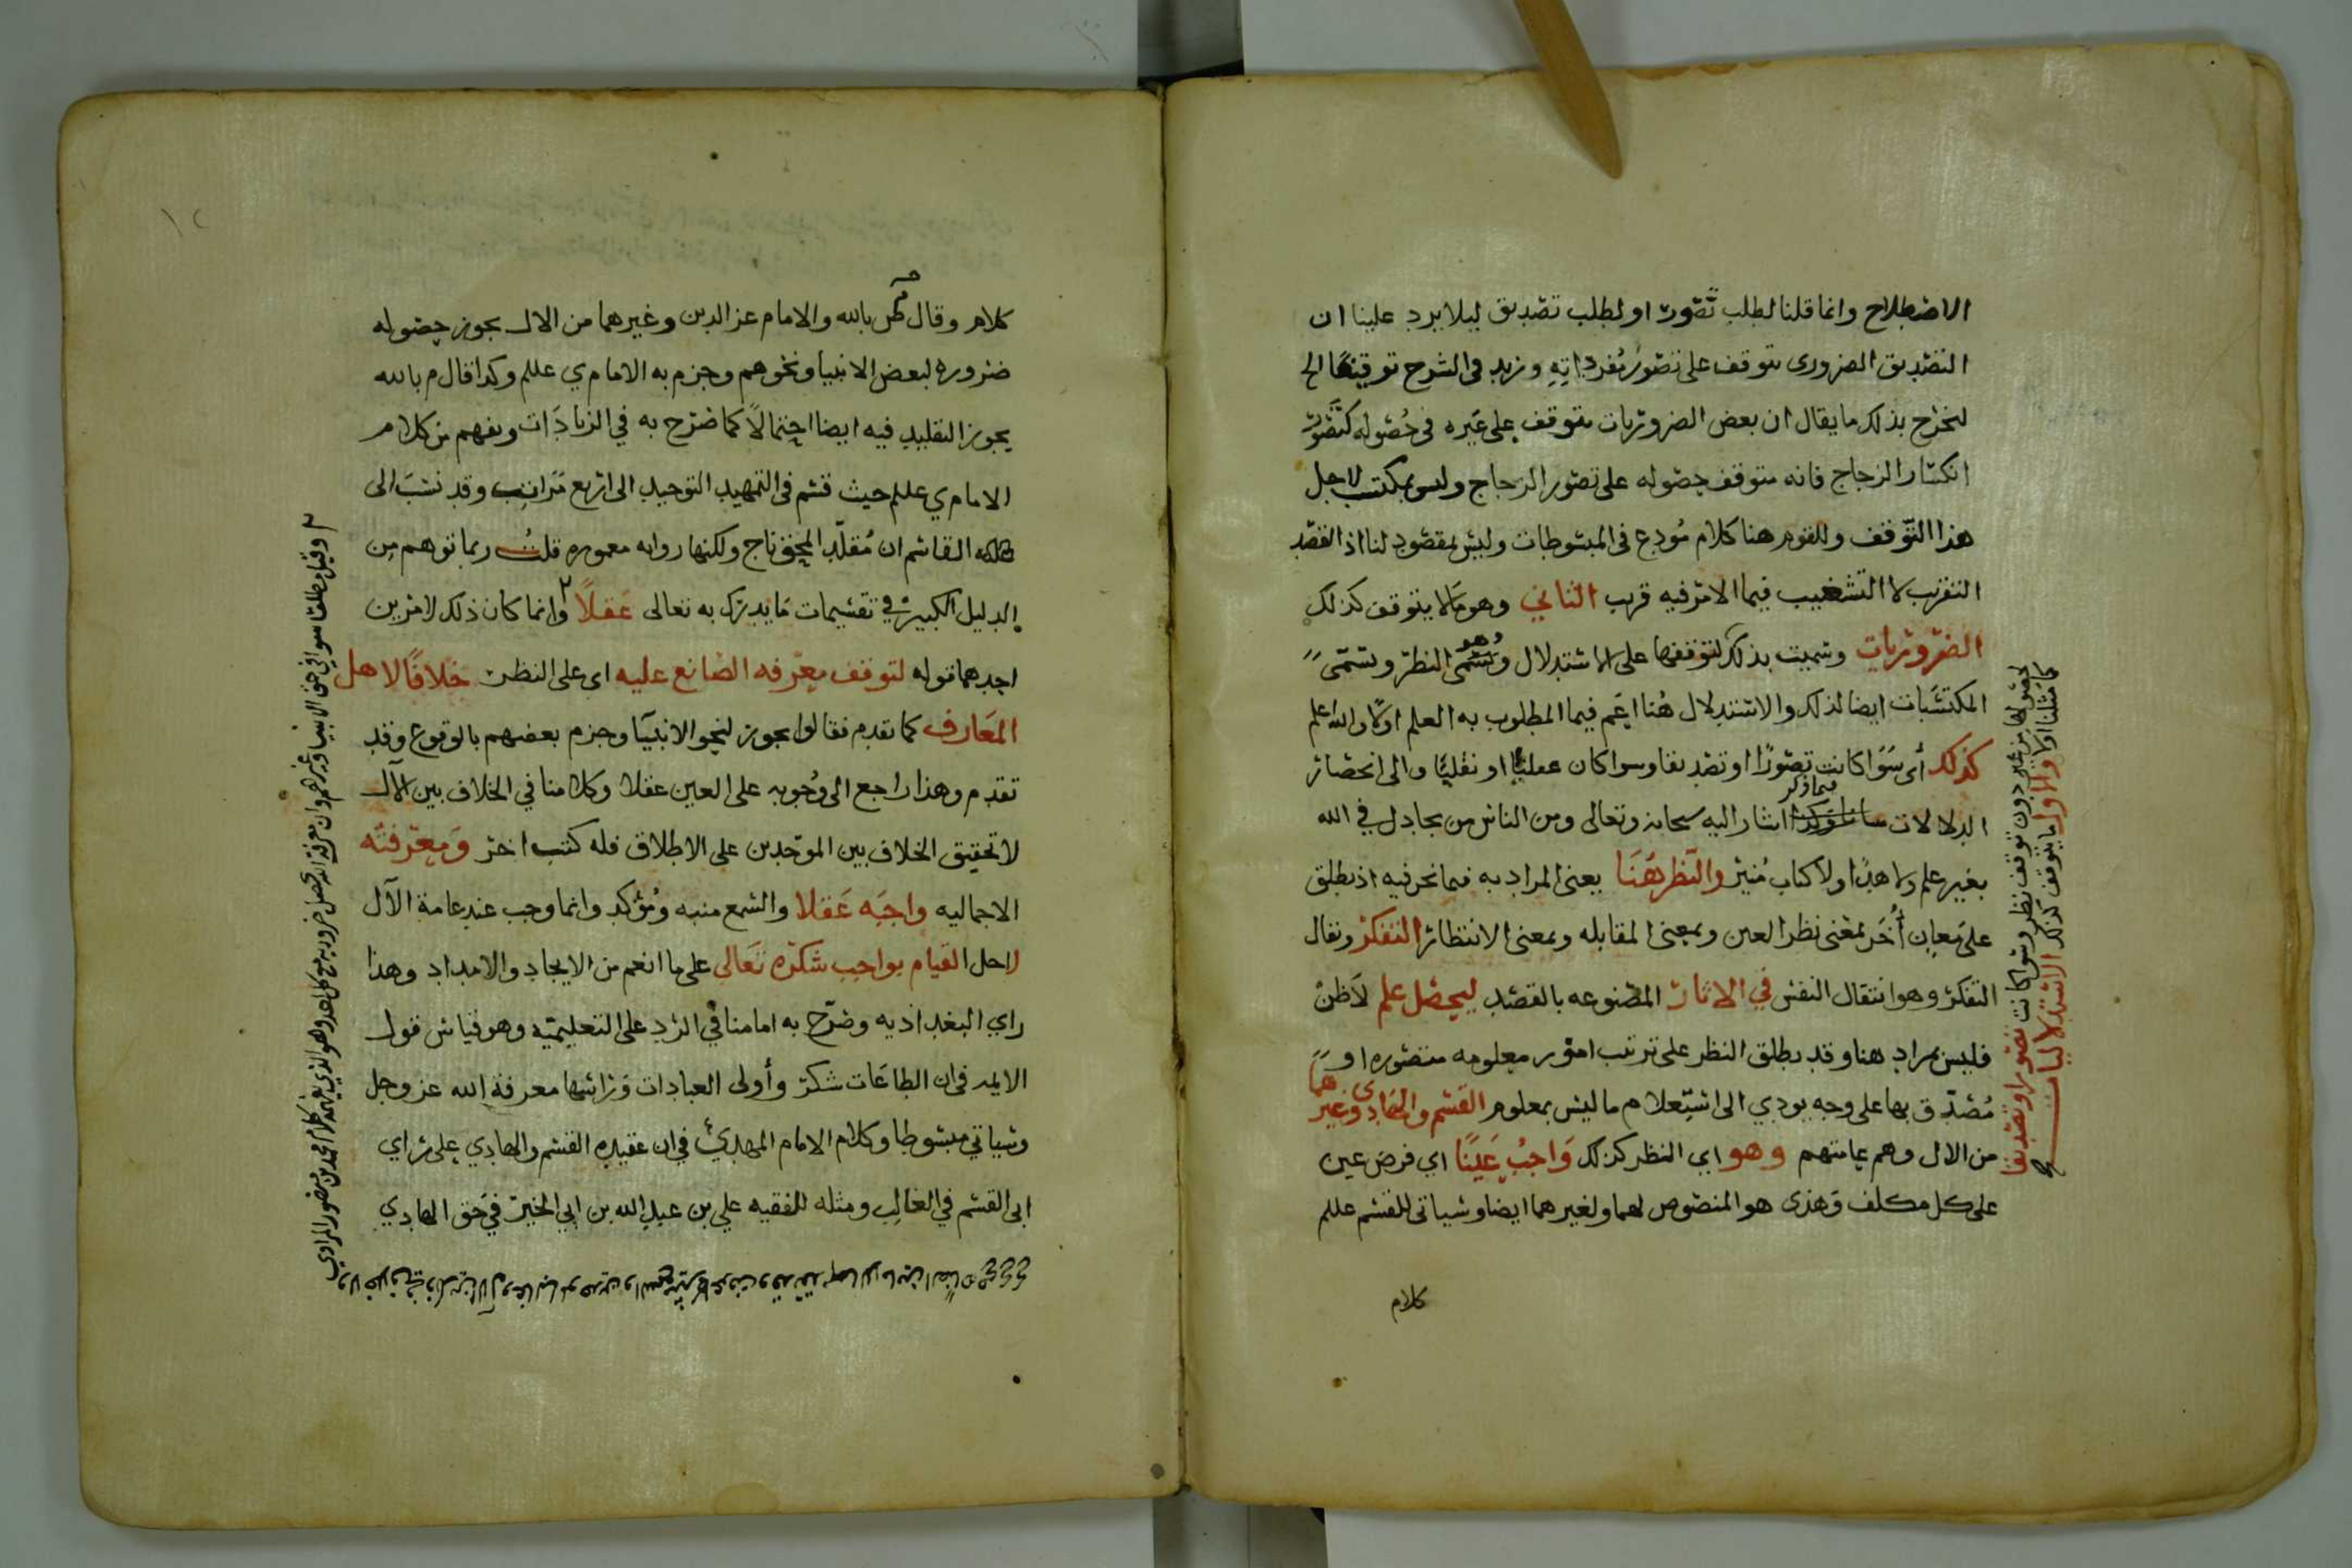 الاصطلاح وانما قلنا لطلب تصّور او لطلب تصديق ليلا يرد علينا ان
التصديق الضروري يتوقف على تصوّر مُفرداتِهِ ونزيد في الشرح توقيفًا الخ
لنخرج بذلك ما يقال ان بعض الضروريات يتوقف على غيره في حُصوله كتَصَوّر
انكسار الزجاج فانه يتوقف حصوله على تصور الزجاج وليس بمكتسب لاجل
هذا التّوقف وللقوم هنا كلام مُودع في المبسوطات وليس بمقصود لنا اذ القصد
التقريب لا التشغيب فيما الامر فيه قريب الثاني وهو مَا لا يتوقف كذلك
الضّروريّات وسميت بذلك لتوقفها على الاستدلال وهو يُسَمّى النظر وتسمّى
المكتسَبات ايضا لذلك والاستدلال هُنا اعَم فيما المطلوب به العلم اوّلًا والله اعلم
كذلك أى سَوَا كانت تصَورًا او تصديقا وسوا كان عقليًّا او نقليًّا والى انحصار
الدلالات فيما ذكر اشار اليه سبحانه وتعالى ومن الناس من يجادل في الله
بغير علم ولا هدًا ولا كتاب مُنير والنّظر هُنَا يعنى المراد به فيما نحن فيه اذ يطلق
على مَعانٍ أُخَر لمعنى نظر العين وبمعنى المقابله وبمعنى الانتظار التفكر ويقال
التفكر وهو انتقال النفس في الاثار المصنوعه بالقصد ليحصل علم لأظنّ
فليس بمراد هنا وقد يطلق النظر على ترتيب امور معلومه متصوره او
مُصَدّق بها على وجه يودي الى استعلام ما ليس بمعلوم القسم والهادى وغيرهما
من الال وهم عامتهم وهو اي النظر كذلك وَاجبٌ عَينًا اي فرض عين
على كل مكلف وَهذى هو المنصوص لهما ولغيرهما ايضا وسياتى للقسم عللم
كلام
كلام وقال بالله والامام عز الدين وغيرهما من الال يجوز حصوله
ضروره لبعض الانبيا ونحوهم وجزم به الامام ي عللم وكذا قال م بالله
يجوز التقليد فيه ايضا احتمالًا كما صَرّح به في الزيادَات ويفهم من كلام
الامام ي عللم حيث قسم في التمهيد التوحيد الى اربع مَراتب وقد نسَبَ الى
القاسم ان مُقلّد المحق ناج ولكنها روايه مغموره قلتُ ربما توهم من
الدليل الكبير في تقسيمات مَا يدرك به تعالى عَقلًا وانما كان ذلك لامرين
احدهما قوله لتوقف معرفه الصّانع عليه اى على النظر خلافًا لاهل
المعَارف كما تقدم فقالوا يجوز لنحو الانبيَا وجزم بعضهم بالوقوع وقد
تقدم وهذا راجع الى وُجُوبه على العين عقلا وكلامنا في الخلاف بين الآل
لا تحقيق الخلاف بين الموّحدين على الاطلاق فله كتب اخر وَمعرفته
الاجماليه واجبَه عَقلا والسّمع منبه ومُؤكد وانما وجب عند عامة الآل
لاجل القيام بواجب شكره تَعَالى على ما انعم من الايجاد والامداد وهذا
راي البغداذيه وصَرّح به امامنا في الرّد على التعليميّه وهو قياس قول
الايمه في ان الطاعَات شكر وأولى العبادات وَراسُها معرفة الله عز وجل
وسياتي مبسوطا وكلام الامام المهديّ في ان عقيده القسم والهادي على راي
ابى القسم في الغالب ومثله للفقيه علي بن عبد الله بن ابي الخير في حَق الهادي